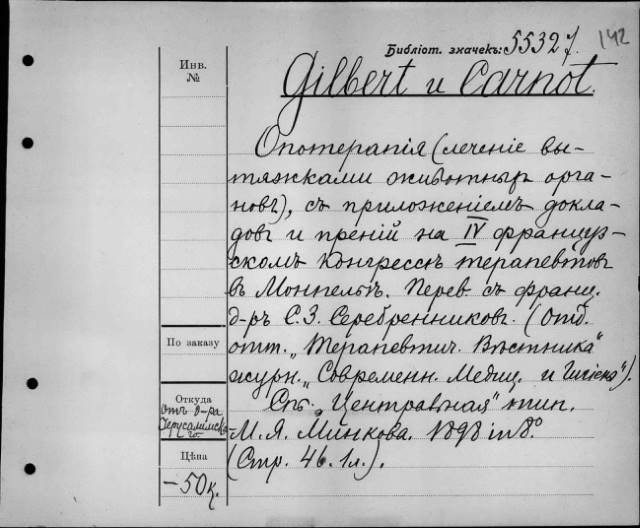 142
Библіот. значекъ: 55327.
Gilbert и Carnot.
Инв.
№
Опотерапія (леченіе вы-
тяжками животныхъ орга-
новъ), съ приложеніемъ докла-
довъ и преній на IV француз-
скомъ конгрессѣ терапевтовъ
въ Монпельѣ. Перев. съ франц.
д-ръ С. З. Серебренниковъ. (Отд.
отт. „Терапевтич. Вѣстника“
журн. „Современн. Медиц. и Гигіена“).
Спб. „Центральная“ тип.
М. Я. Минкова. 1898 in 8°
(Стр. 46. 1 л.).
По заказу
Откуда
отъ д-ра
Іерусалимска-
го.
Цѣна
— 50 к.